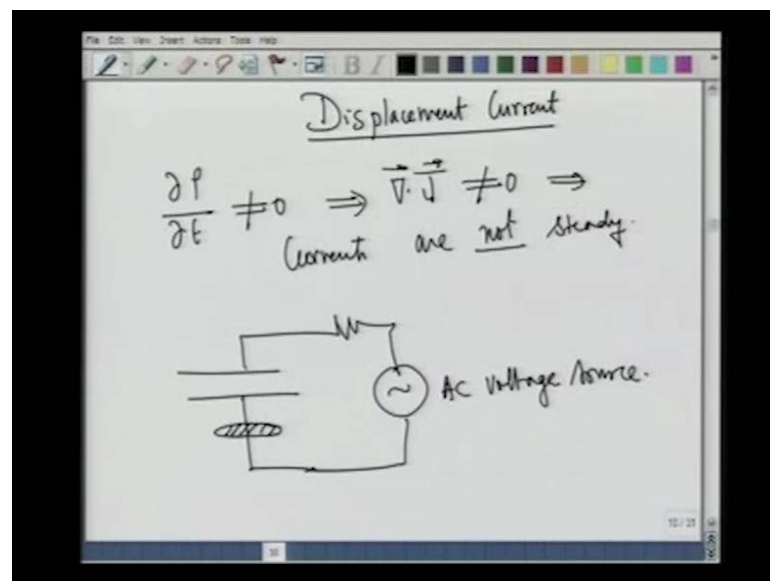 File Edit View Insert Actions Tools Help
B I
Displacement Current
∂ρ/∂t ≠ 0 ⇒ ∇⃗·J⃗ ≠ 0 ⇒
Currents are not steady.
~ AC voltage source.
10 / 31